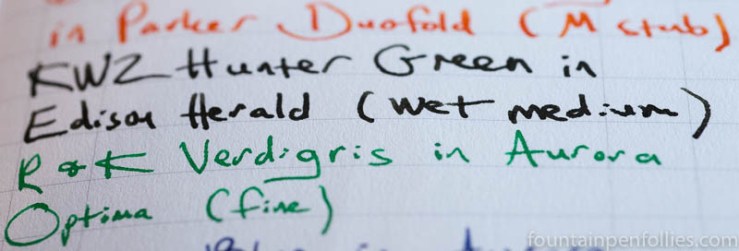 in Parker Duofold (M stub)
KWZ Hunter Green in
Edison Herald (wet medium)
R & K Verdigris in Aurora
Optima (fine)
fountainpenfollies.com